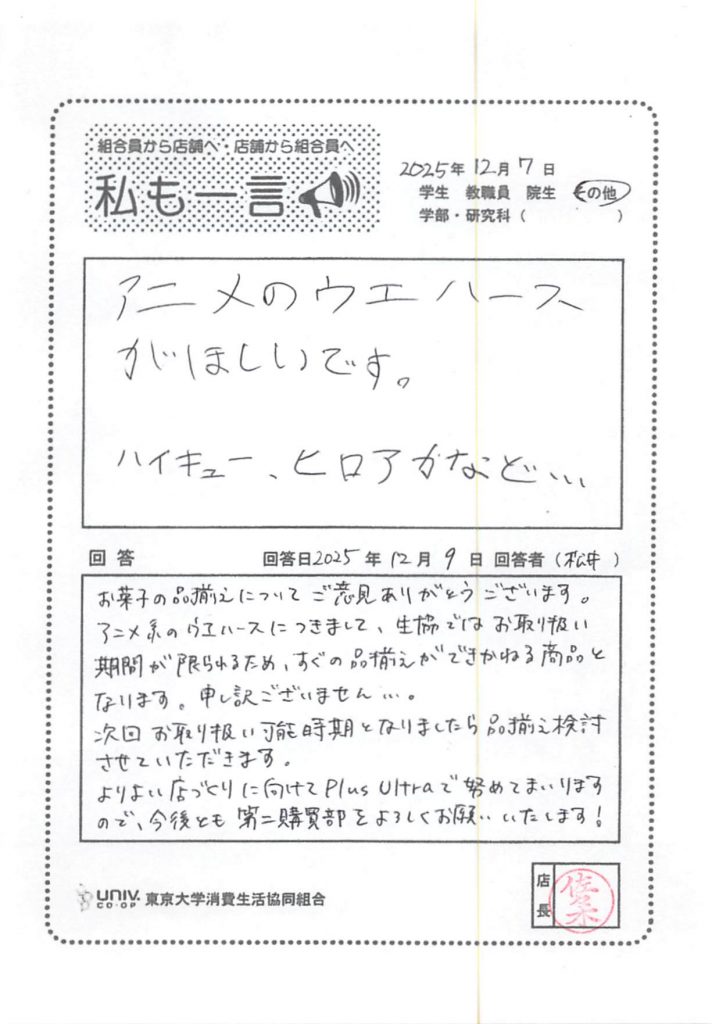 組合員から店舗へ・店舗から組合員へ
私も一言
2025年12月7日
学生 教職員 院生 その他
学部・研究科（ ）
アニメのウエハース
がほしいです。
ハイキュー、ヒロアカなど…
回答 回答日2025年12月9日 回答者（松井）
お菓子の品揃えについてご意見ありがとうございます。
アニメ系のウエハースにつきまして、生協ではお取り扱い
期間が限られるため、すぐの品揃えができかねる商品と
なります。申し訳ございません…。
次回お取り扱い可能時期となりましたら品揃え検討
させていただきます。
よりよい店づくりに向けてPlus Ultraで努めてまいります
ので、今後とも第二購買部をよろしくお願いいたします！
UNIV. CO-OP 東京大学消費生活協同組合
店長 佐々木